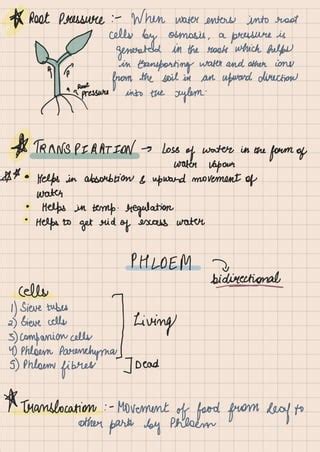 Root Pressure :- When water enters into root
cells by osmosis, a pressure is
generated in the roots which helps
in transporting water and other ions
from the soil in an upward direction
into the xylem.
Root
pressure
TRANSPIRATION → Loss of water in the form of
water vapour
• Helps in absorbtion & upward movement of
water
• Helps in temp. regulation
• Helps to get rid of excess water
PHLOEM
bidirectional
Cells
1) Sieve tubes
2) Sieve cells
3) Companion cells
4) Phloem Parenchyma
Living
5) Phloem fibres
Dead
Translocation :- Movement of food from leaf to
other parts by Phloem